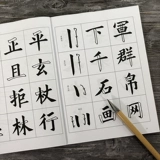 軍群帛网
下千石画
平玄杖行
正且拒林